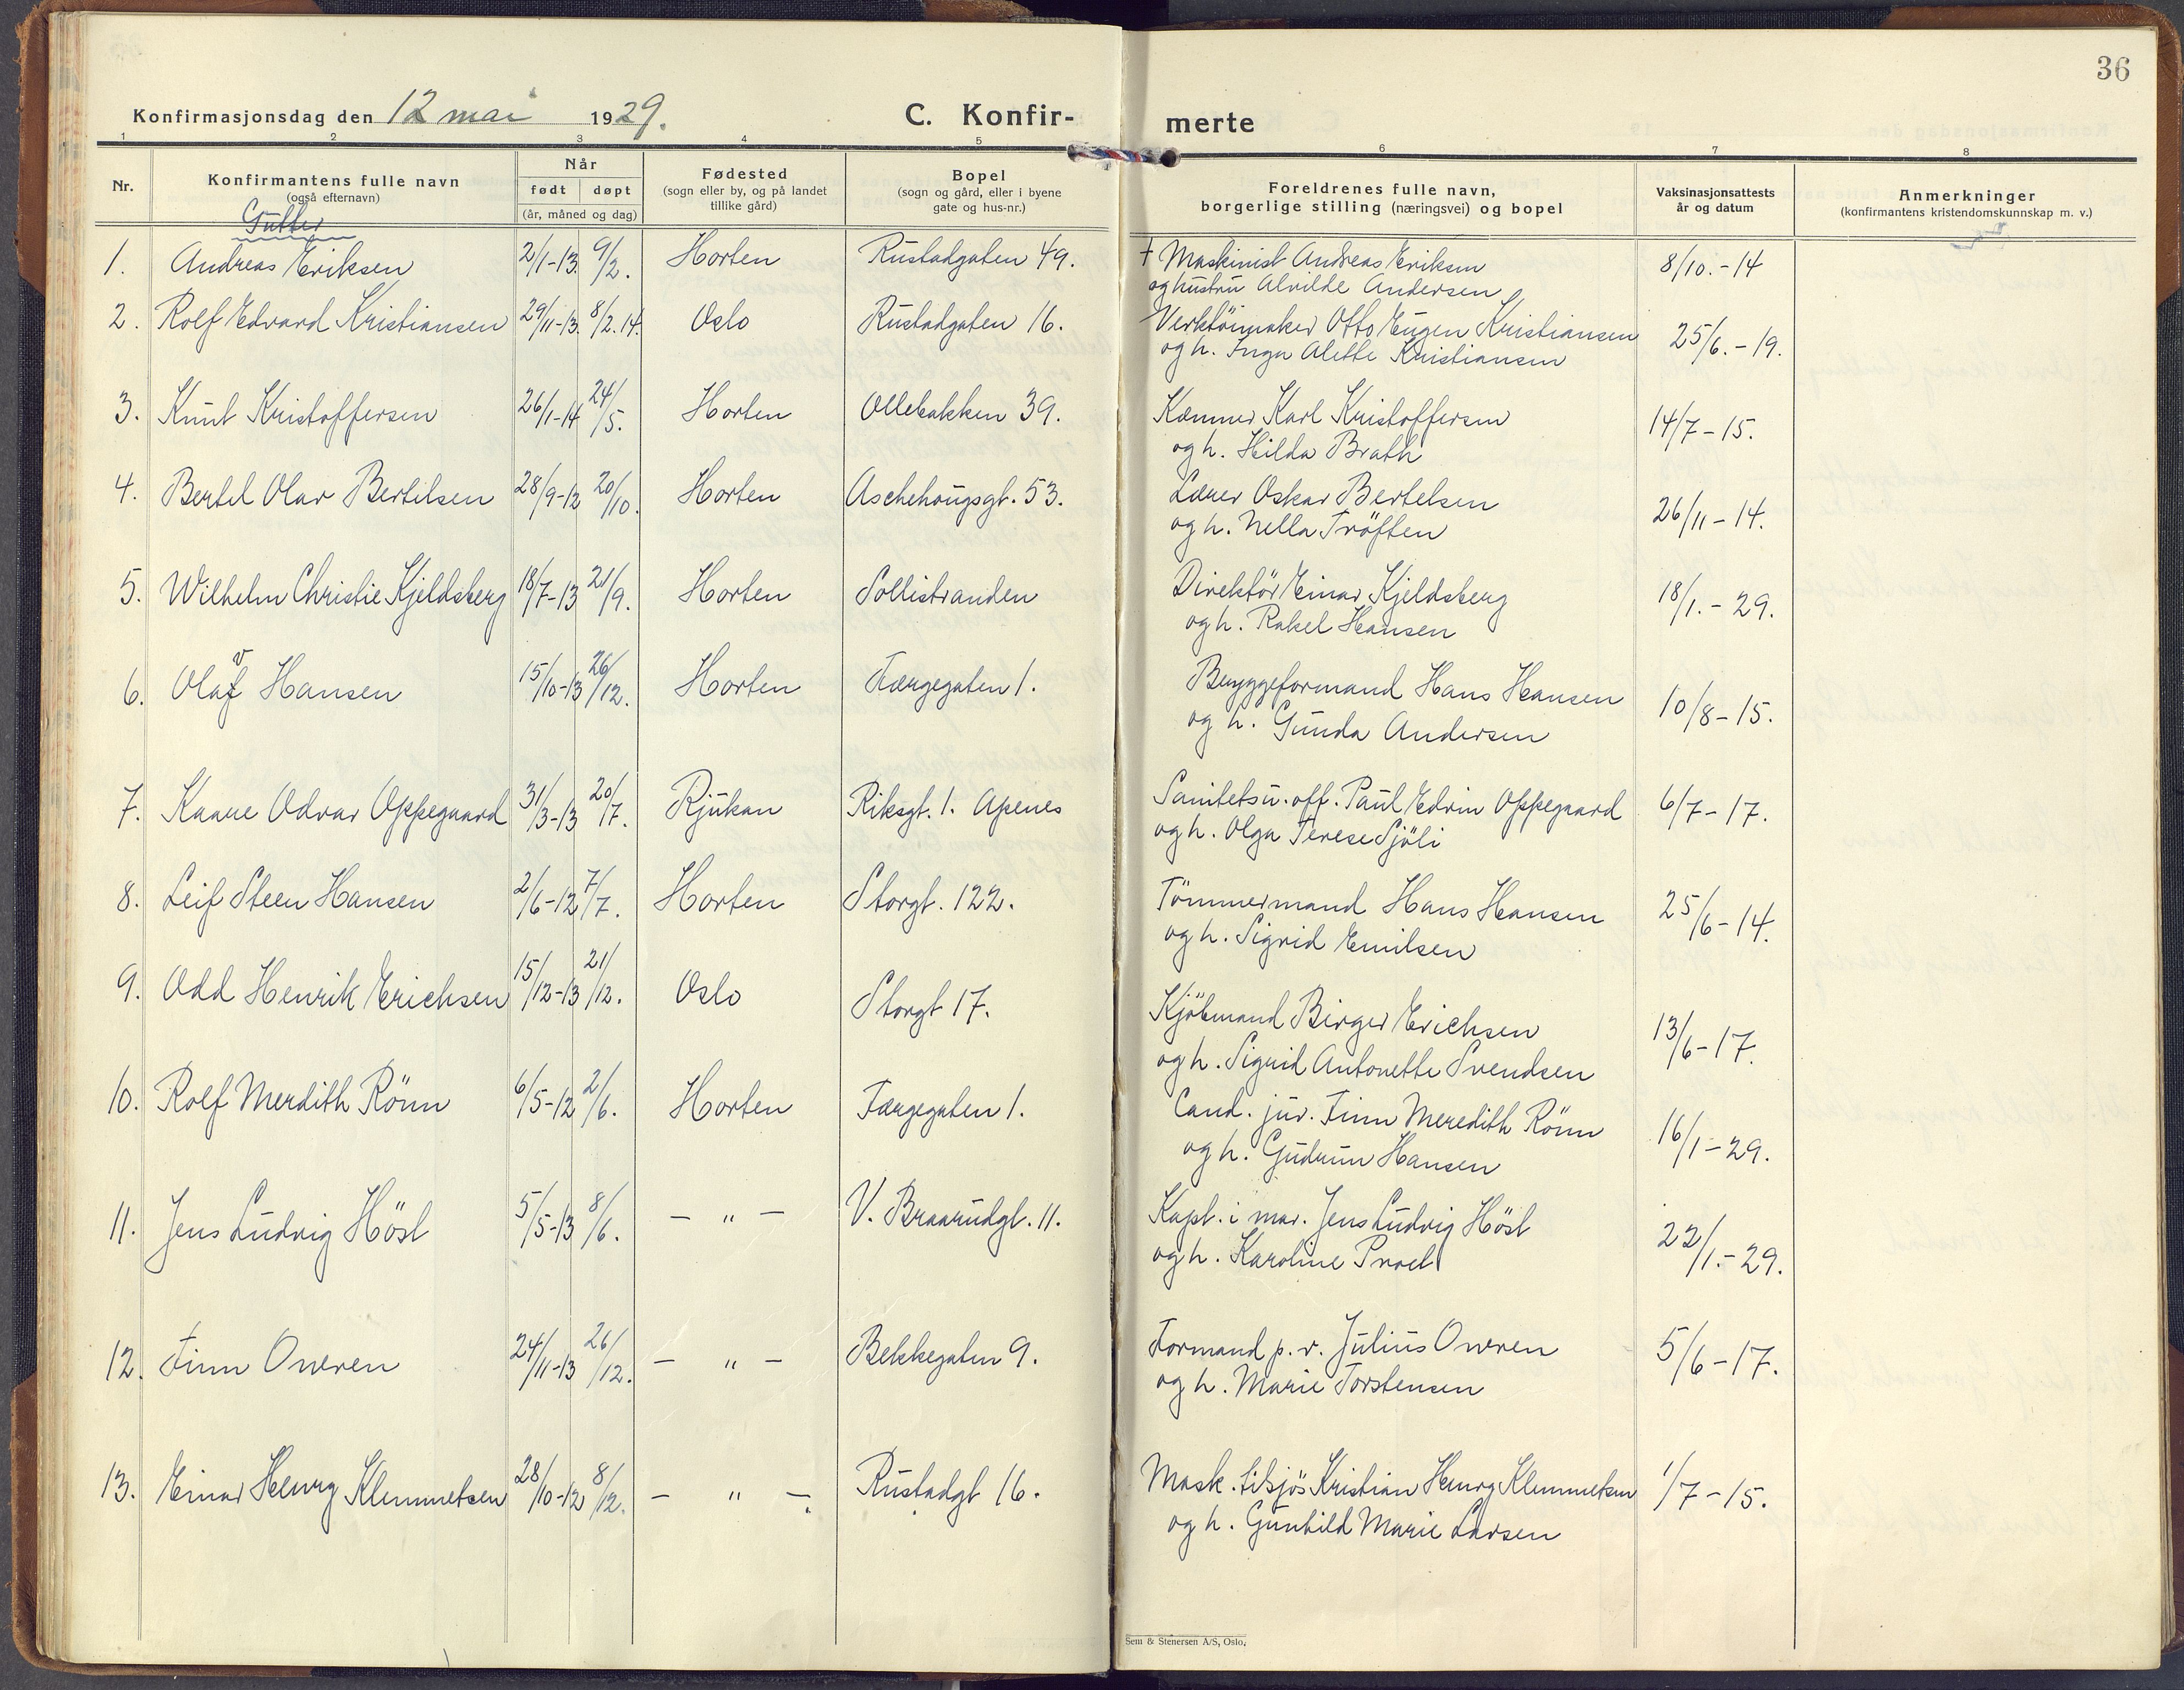 36
Konfirmasjonsdag den 12 mai 1929.
C. Konfir-
merte
1 2 3 4 5 6 7 8
Nr.
Konfirmantens fulle navn
(også efternavn)
Når
født døpt
(år, måned og dag)
Fødested
(sogn eller by, og på landet
tillike gård)
Bopel
(sogn og gård, eller i byene
gate og hus-nr.)
Foreldrenes fulle navn,
borgerlige stilling (næringsvei) og bopel
Vaksinasjonsattests
år og datum
Anmerkninger
(konfirmantens kristendomskunnskap m. v.)
Gutter
1. Andreas Eriksen 2/1-13. 9/2. Horten Rustadgaten 49. † Maskinist Andreas Eriksen 8/10.-14
og hustru Alvilde Andersen
2. Rolf Edvard Kristiansen 29/11-13. 8/2.14. Oslo Rustadgaten 16. Verktöimaker Otto Eugen Kristiansen 25/6.-19.
og h. Inga Alette Kristiansen
3. Knut Kristoffersen 26/1-14 24/5. Horten Ollebakken 39. Kæmner Karl Kristoffersen 14/7-15.
og h. Hilda Brath
4. Bertel Olav Bertelsen 28/9-13 20/10. Horten Aschehougsgt. 53. Lærer Oskar Bertelsen 26/11-14.
og h. Nella Tröften
5. Wilhelm Christie Kjeldsberg 18/7-13 21/9. Horten Sollistranden Direktör Einar Kjeldsberg 18/1.-29.
og h. Rakel Hansen
6. Olaf v Hansen 15/10-13 26/12. Horten Færgegaten 1. Bryggeformand Hans Hansen 10/8-15.
og h. Gunda Andersen
7. Kaare Odvar Oppegaard 31/3-13 20/7. Rjukan Riksgt. 1. Apenes Sanitetsu.off. Paul Edvin Oppegaard 6/7-17.
og h. Olga Terese Sjöli
8. Leif Steen Hansen 2/6-12 7/7. Horten Storgt. 122. Tömmermand Hans Hansen 25/6-14.
og h. Sigrid Emilsen
9. Odd Henrik Erichsen 15/12-13 21/12. Oslo Storgt 17. Kjöbmand Birger Erichsen 13/6-17.
og h. Sigrid Antonette Svendsen
10. Rolf Merdith Rönn 6/5-12 2/6. Horten Færgegaten 1. Cand. jur. Finn Meredith Rönn 16/1-29.
og h. Gudrun Hansen
11. Jens Ludvig Höst 5/5-13 8/6. - " - V. Braarudgt. 11. Kapt. i mar. Jens Ludvig Höst 22/1.-29.
og h. Karoline
12. Finn Owren 24/11-13 26/12. - " - Bekkegaten 9. Formand p.v. Julius Owren 5/6-17.
og h. Marie Torstensen
13. Einar Henry Klemmetsen 28/10-12 8/12. - " -. Rustadgt 16. Mask. Kristian Henry Klemmetsen 1/7-15.
og h. Gunhild Marie Larsen
Sem & Stenersen A/S, Oslo.